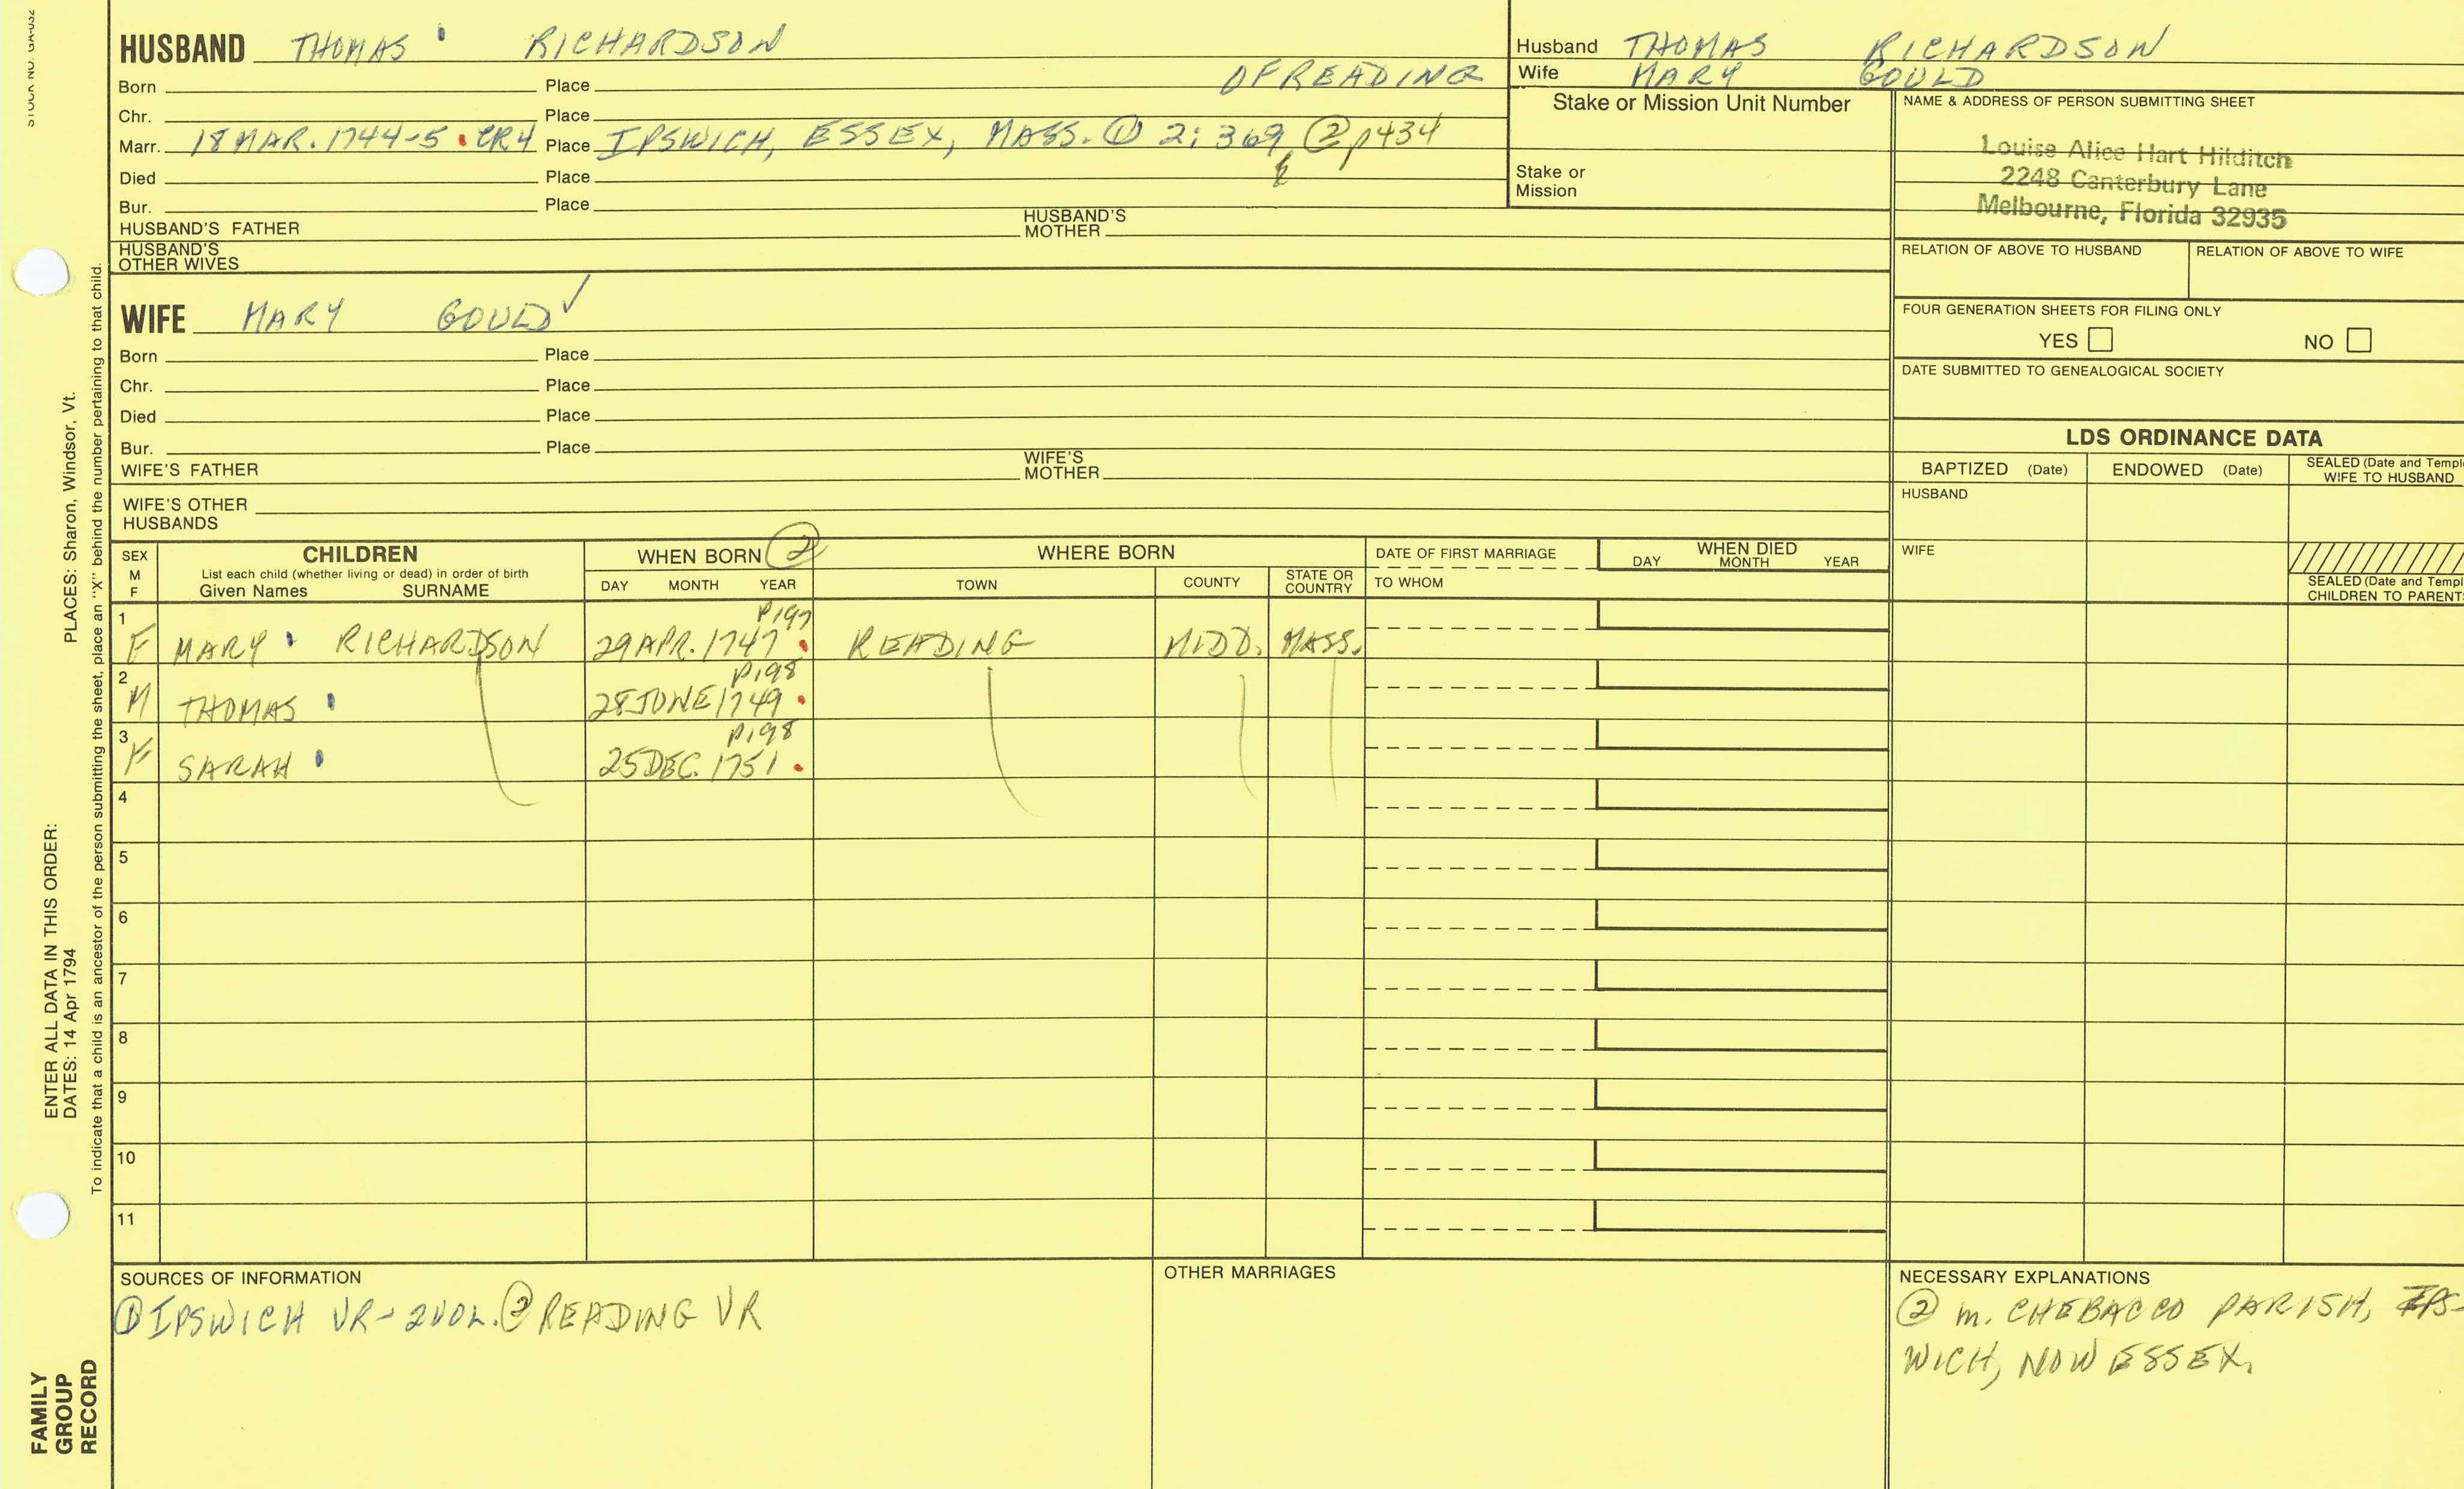 HUSBAND THOMAS RICHARDSON
OF READING
Born Place
Chr. Place
Marr. 18 MAR. 1744-5 . CR4 Place IPSWICH, ESSEX, MASS. ① 2: 369, ② p434
Died Place
Bur. Place
HUSBAND'S FATHER HUSBAND'S MOTHER
HUSBAND'S OTHER WIVES
Husband THOMAS RICHARDSON
Wife MARY GOULD
Stake or Mission Unit Number
Stake or Mission
NAME & ADDRESS OF PERSON SUBMITTING SHEET
Louise Alice Hart Hilditch
2248 Canterbury Lane
Melbourne, Florida 32935
RELATION OF ABOVE TO HUSBAND RELATION OF ABOVE TO WIFE
FOUR GENERATION SHEETS FOR FILING ONLY
YES NO
DATE SUBMITTED TO GENEALOGICAL SOCIETY
WIFE MARY GOULD ✓
Born Place
Chr. Place
Died Place
Bur. Place
WIFE'S FATHER WIFE'S MOTHER
WIFE'S OTHER HUSBANDS
LDS ORDINANCE DATA
BAPTIZED (Date) ENDOWED (Date) SEALED (Date and Templ
WIFE TO HUSBAND
HUSBAND
WIFE
SEALED (Date and Templ
CHILDREN TO PARENTS
SEX M F
CHILDREN
List each child (whether living or dead) in order of birth
Given Names SURNAME
WHEN BORN ②
DAY MONTH YEAR
WHERE BORN
TOWN COUNTY STATE OR COUNTRY
DATE OF FIRST MARRIAGE
TO WHOM
WHEN DIED
DAY MONTH YEAR
p197
1 F MARY RICHARDSON 29 APR. 1747 . READING MIDD. MASS.
p198
2 M THOMAS 28 JUNE 1749 .
p198
3 F SARAH 25 DEC. 1751 .
4
5
6
7
8
9
10
11
SOURCES OF INFORMATION
① IPSWICH VR - 2 VOL. ② READING VR
OTHER MARRIAGES
NECESSARY EXPLANATIONS
② m. CHEBACCO PARISH, IPS-
WICH, NOW ESSEX.
STOCK NO. GA-032
PLACES: Sharon, Windsor, Vt.
ENTER ALL DATA IN THIS ORDER:
DATES: 14 Apr 1794
To indicate that a child is an ancestor of the person submitting the sheet, place an "X" behind the number pertaining to that child.
FAMILY
GROUP
RECORD